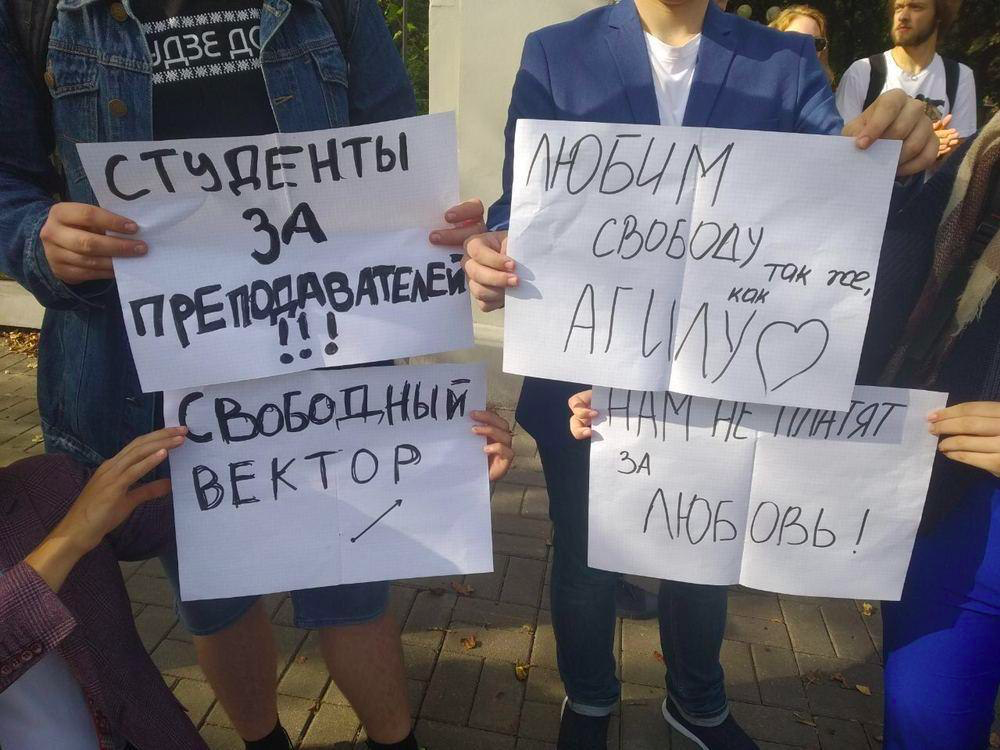 УДЗЕ ДО
СТУДЕНТЫ
ЗА
ПРЕПОДАВАТЕЛЕЙ
!!!
ЛЮБИМ
СВОБОДУ
так же,
как
АГИЛУ♡
СВОБОДНЫЙ
ВЕКТОР
НАМ НЕ ПЛАТЯТ
ЗА
ЛЮБОВЬ!